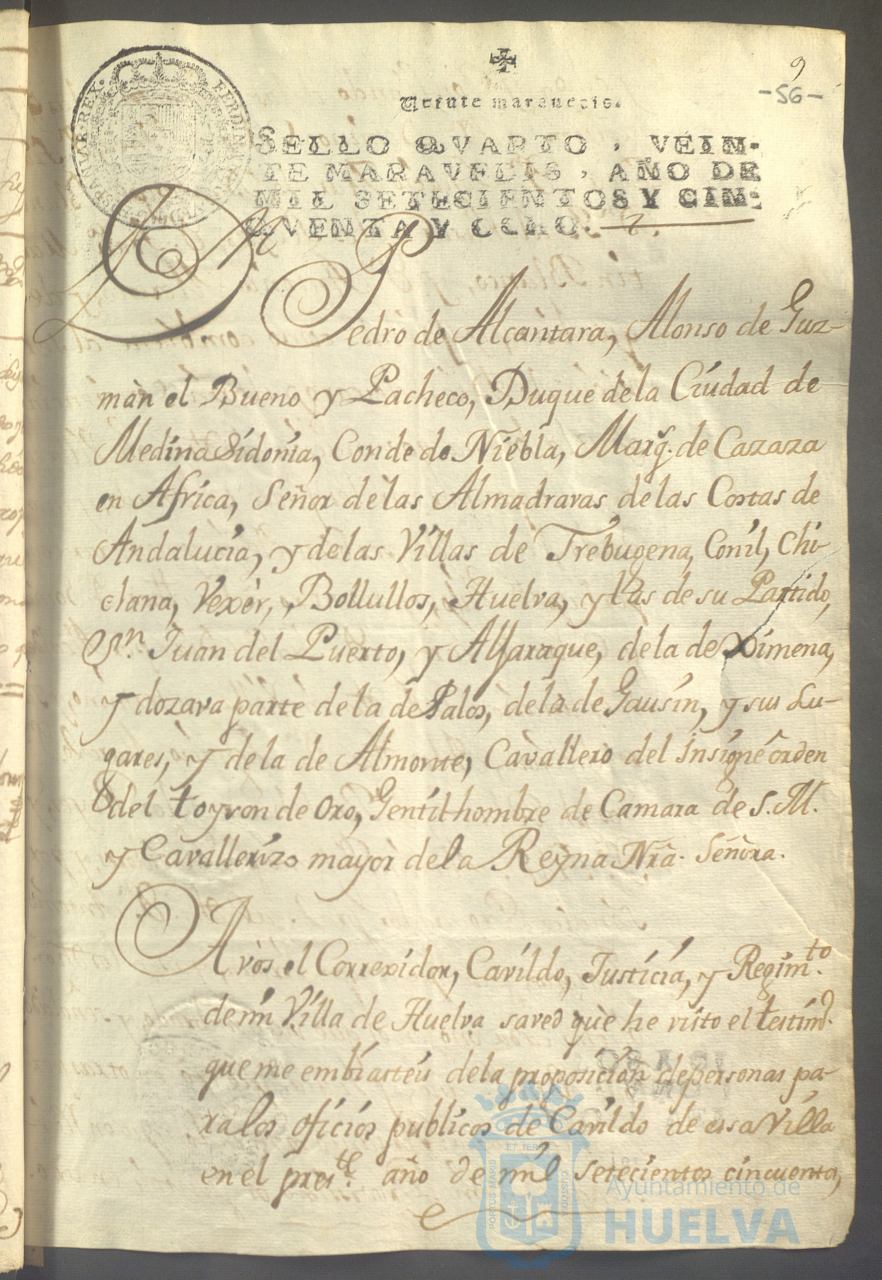 9
-56-
Veinte maravedis.
SELLO QVARTO, VEIN-
TE MARAVEDIS, AÑO DE
MIL SETECIENTOS Y CIN-
QVENTA Y OCHO.
Dn Pedro de Alcantara, Alonso de Guz-
màn el Bueno y Pacheco, Duque dela Ciudad de
Medina Sidonia, Conde de Niebla, Marq. de Cazaza
en Africa, Señor delas Almadravas de las Costas de
Andalucia, y delas Villas de Trebugena, Conil, Chi-
clana, Vexèr, Bollullos, Huelva, y las de su Partido,
Sn. Juan del Puerto, y Alfaraque, dela de Ximena,
y dozava parte de la de Palos, dela de Gausin, y sus Lu-
gares, y dela de Almonte, Cavallero del Insigne orden
del toyson de Oro, Gentilhombre de Camara de S. M.
y Cavallerizo mayor dela Reyna Nrã. Señora.
A vòs el Correxidor, Cavildo, Justicia, y Regimto.
de mi Villa de Huelva saved què he visto el testimo.
que me embiasteis dela proposiciòn de personas pa-
ra los oficios publicos de Cavildo de essa Villa
en el preste. año de mil setecientos cincuenta,
Ayuntamiento de
HUELVA